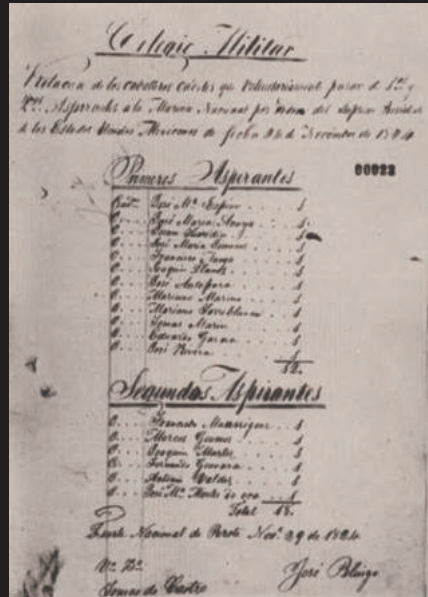 Colegio Militar
Relacion de los caballeros Cadetes que Voluntariamente pasan de 1os y
2os Aspirantes a la Marina Nacional por orden del Supremo
de los Estados Unidos Mexicanos de fecha 24 de Noviembre de 1824
Primeros Aspirantes
00023
José Ma Espino 1
O. José Maria Anaya 1
O. Juan 1
O. José Maria 1
O. Francisco 1
O. Joaquin 1
O. José Antepara 1
O. Mariano Marino 1
O. Mariano Torreblanca 1
O. Tomas Marin 1
O. Eduardo Garcia 1
O. José Rivera 1
12.
Segundos Aspirantes
O. Fernando Manrrique 1
O. Marcos 1
O. Joaquin 1
O. Fernando Guevara 1
O. Antonio Valdes 1
O. José Ma Montes de oca 1
Total 18.
Fuerte Nacional de Perote Nove 29 de 1824
Vo Bo
José
de Castro